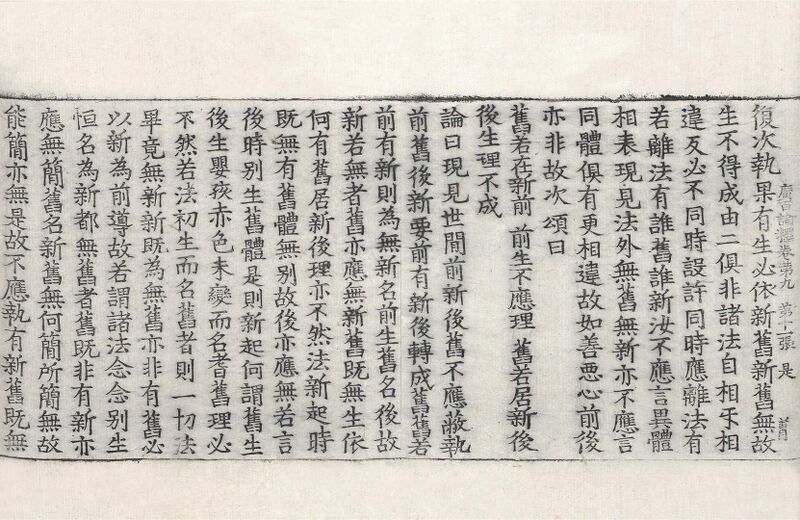 復次執果有生必依新舊新舊無故
廣百論釋卷第九 第十張 是
生不得成由二俱非諸法自相㸦相
違反必不同時設許同時應離法有
若離法有誰舊誰新汝不應言異體
相表現見法外無舊無新亦不應言
同體俱有更相違故如善惡心前後
亦非故次頌曰
舊若在新前 前生不應理 舊若居新後
後生理不成
論曰現見世間前新後舊不應蔽執
前舊後新要前有新後轉成舊舊若
前有新則為無新名前生舊名後故
新若無者舊亦應無新舊既無生依
何有舊居新後理亦不然法新起時
既無有舊體無別故後亦應無若言
後時別生舊體是則新起何謂舊生
後生嬰孩亦色未變而名耆舊理必
不然若法初生而名舊者則一切法
畢竟無新新既為無舊亦非有舊必
以新為前導故若謂諸法念念別生
恒名為新都無舊者舊既非有新亦
應無簡舊名新舊無何簡所簡無故
能簡亦無是故不應執有新舊既無